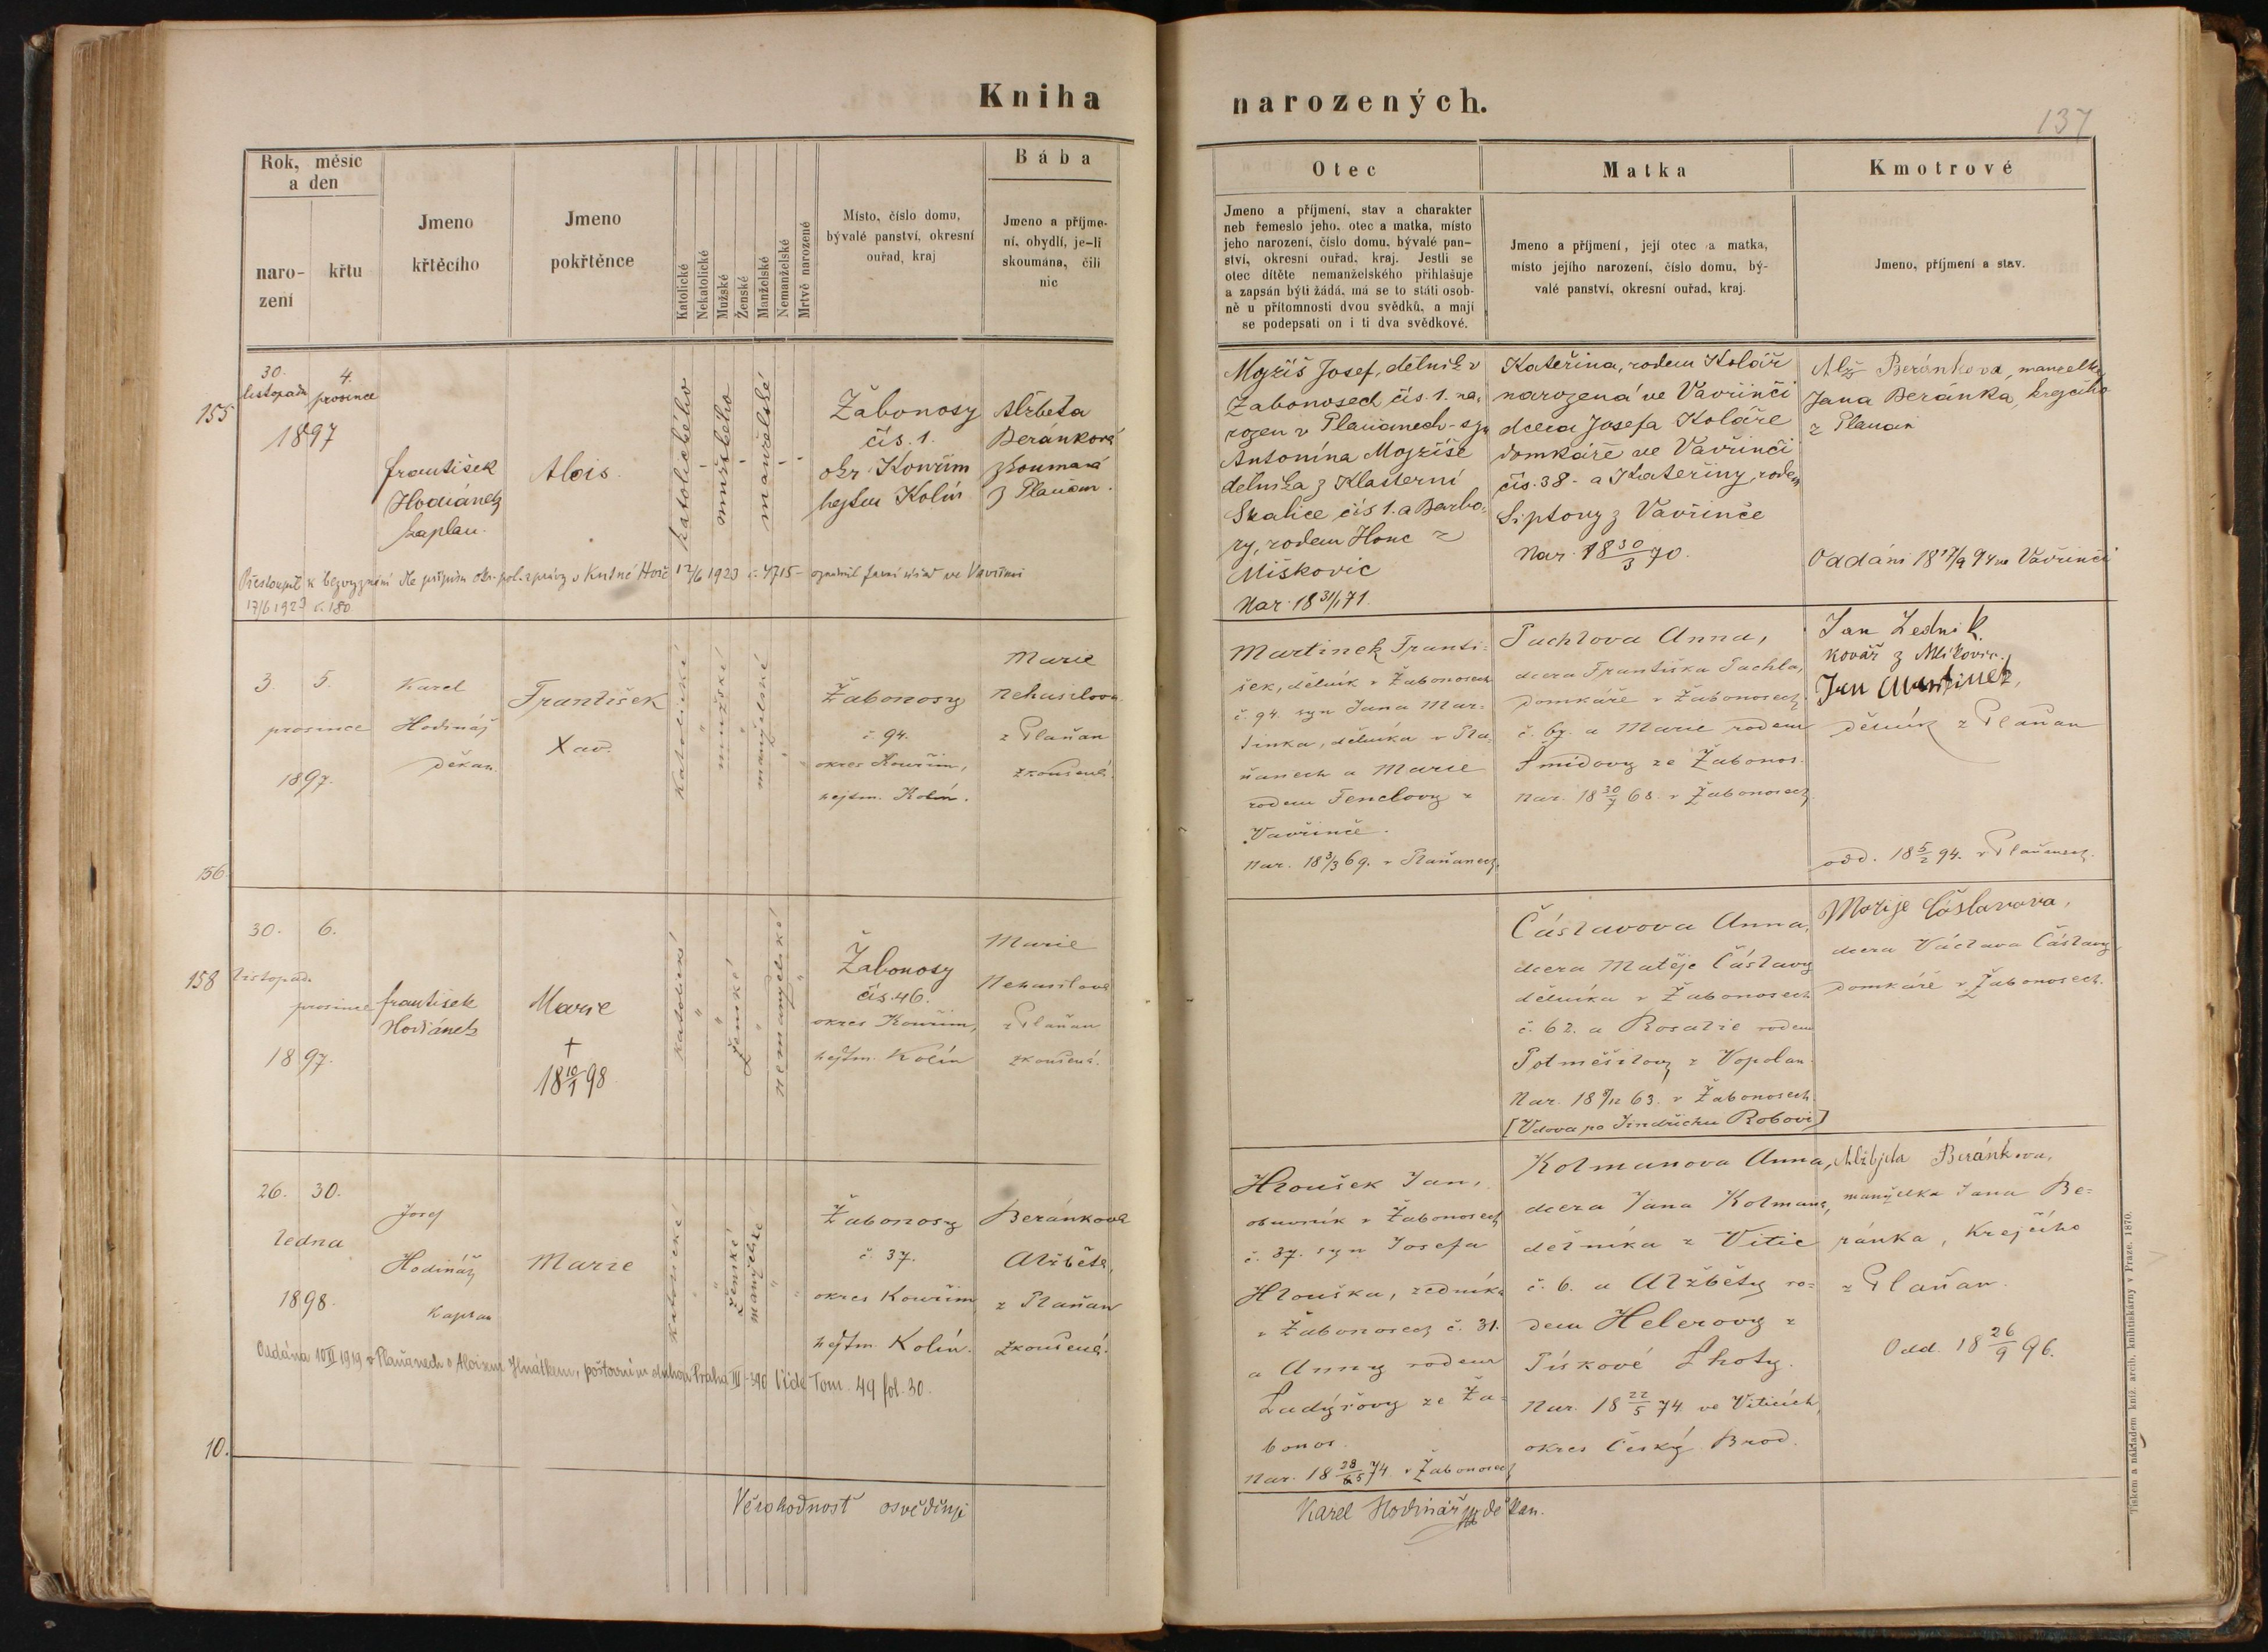 Kniha narozených.
137
Rok, měsíc
a den
naro-
zení
křtu
Jmeno
křtěcího
Jmeno
pokřtěnce
Katolické
Nekatolické
Mužské
Ženské
Manželské
Nemanželské
Mrtvě narozené
Místo, číslo domu,
bývalé panství, okresní
ouřad, kraj
Bába
Jmeno a příjme-
ní, obydlí, je-li
skoumána, čili
nic
Otec
Jmeno a příjmení, stav a charakter
neb řemeslo jeho, otec a matka, místo
jeho narození, číslo domu, bývalé pan-
ství, okresní ouřad, kraj. Jestli se
otec dítěte nemanželského přihlašuje
a zapsán býti žádá, má se to státi osob-
ně u přítomnosti dvou svědků, a mají
se podepsati on i ti dva svědkové.
Matka
Jmeno a příjmení, její otec a matka,
místo jejího narození, číslo domu, bý-
valé panství, okresní ouřad, kraj.
Kmotrové
Jmeno, příjmení a stav.
155
30.
listopadu
4.
prosince
1897
František
Hodiánek
kaplan.
Alois.
katolického
mužského
manželské
Žabonosy
čís. 1.
okr. Kouřim
hejtm Kolín
Alžběta
Beránková
zkoumaná
z Plaňan.
Mojžíš Josef, dělník v
Žabonosech čís. 1. na-
rozen v Plaňanech - syn
Antonína Mojžíše
dělníka z Klášterní
Skalice čís 1. a Barbo-
ry, rodem Honc z
Miškovic
Nar. 18 31/1 71.
Kateřina, rodem Kolář
narozená ve Vavřinči
dcera Josefa Koláře
domkáře ve Vavřinči
čís. 38 - a Kateřiny, rodem
Liptovy z Vavřinče
Nar. 18 30/3 70.
Alž Beránkova, manželka
Jana Beránka, krejčího
z Plaňan
Oddáni 18 17/9 94 ve Vavřinči
Přestoupil k bezvyznání dle přípisu okr. pol. zprávy v Kutné Hoře 12/6 1923 č. 4715 - oznámil farní úřad ve Vavřinci
17/6 1923 č. 180
156.
3.
5.
prosince
1897.
Karel
Hodinář
děkan.
František
Xav.
katolické
mužské
manželské
Žabonosy
č. 94.
okres Kouřim,
hejtm. Kolín.
Marie
Nehasilova
z Plaňan
zkoušená.
Martinek Franti-
šek, dělník v Žabonosech
č. 94. syn Jana Mar-
tinka, dělníka v Pla-
ňanech a Marie
rodem Fenclovy z
Vavřinče.
Nar. 18 3/3 69. v Plaňanech.
Pachlova Anna,
dcera Františka Pachla,
domkáře v Žabonosech
č. 67. a Marie rodem
Šmídovy ze Žabonos.
Nar. 18 30/7 68. v Žabonosech.
Jan Zedník.
kovář z Mlíkovic.,
Jan Martinek,
dělník z Plaňan
odd. 18 5/2 94. v Plaňanech.
158
30.
listopadu
6.
prosince
1897.
František
Hodiánek
Marie
†
18 10/1 98
katolické
ženské
nemanželské
Žabonosy
čís. 46.
okres Kouřim,
hejtm. Kolín
Marie
Nehasilova
z Plaňan
zkoušená.
Čáslavova Anna,
dcera Matěje Čáslavy
dělníka v Žabonosech
č. 62. a Rosalie rodem
Potměšilovy z Vopolan
Nar. 18 9/12 63. v Žabonosech
[Vdova po Jindřichu Robovi]
Marije Čáslavova,
dcera Václava Čáslavy
domkáře v Žabonosech.
10.
26.
30.
ledna
1898.
Josef
Hodinář
kaplan
Marie
katolické
ženské
manželské
Žabonosy
č. 37.
okres Kouřim
hejtm. Kolín.
Beránkova
Alžběta,
z Plaňan
zkoušená.
Hloušek Jan,
obuvník v Žabonosech
č. 37. syn Josefa
Hlouška, zedníka
v Žabonosech č. 31.
a Anny rodem
Ladýřovy ze Ža-
bonos.
Nar. 18 28/5 74. v Žabonosech
Kolmanova Anna,
dcera Jana Kolmana,
dělníka z Vitic
č. 6. a Alžběty ro-
dem Helerovy z
Pískové Lhoty.
Nar. 18 22/5 74 ve Viticích,
okres Český Brod.
Alžbjeta Beránkova,
manželka Jana Be-
ránka, krejčího
z Plaňan.
Odd. 18 26/9 96.
Oddána 10/II 1919 v Plaňanech s Aloisem Hnátkem, poštovním sluhou Praha III-390 Vide Tom. 49 fol. 30.
Věrohodnost osvědčuje
Karel Hodinář děkan.
Tiskem a nákladem kníž. arcib. knihtiskárny v Praze. 1870.